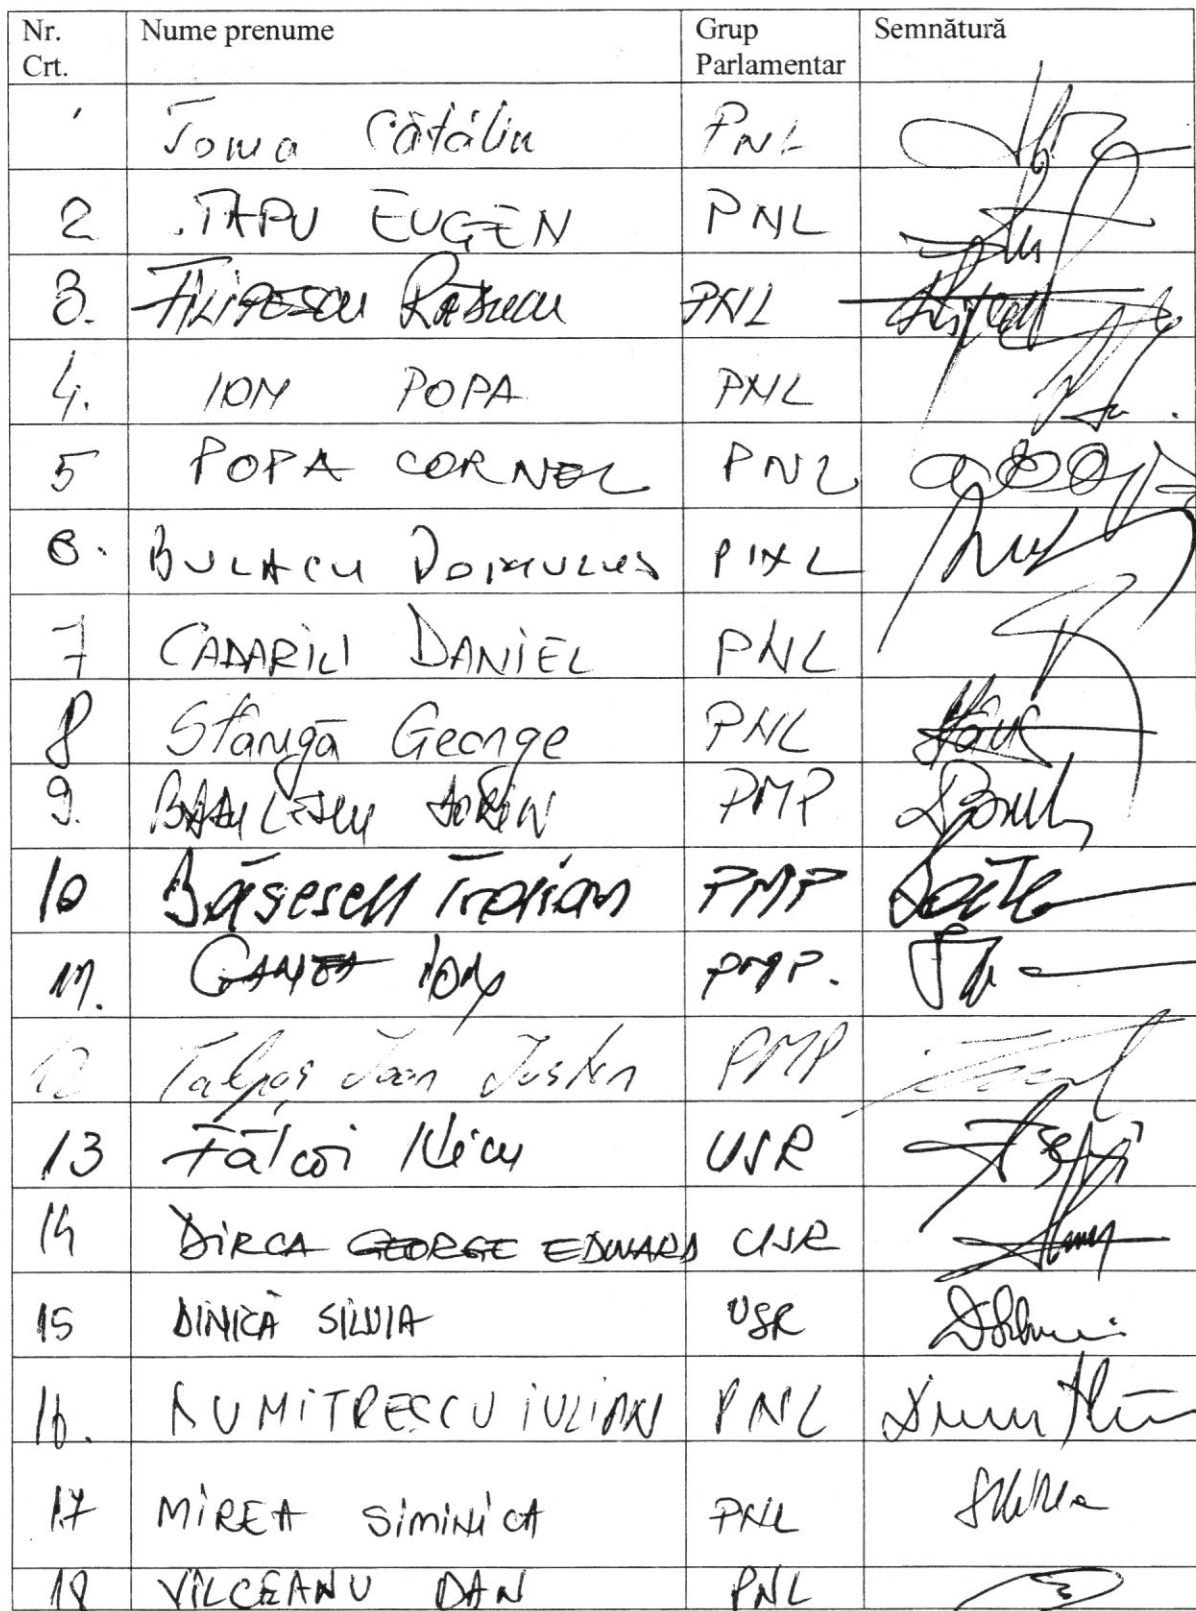 Nr. Crt. Nume prenume Grup Parlamentar Semnătură
1 Toma Cătălin PNL
2 ȚAPU EUGEN PNL
3. FILIPESCU RĂDUCU PNL
4. ION POPA PNL
5 POPA CORNEL PNL
6. BULACU ROMULUS PNL
7 CADARIU DANIEL PNL
8 Stângă George PNL
9. BĂDULESCU DORIN PMP
10 Băsescu Traian PMP
11. GANEA ION PMP.
12 Talpoș Ioan Iustin PMP
13 Fălcoi Nicu USR
14 DIRCA GEORGE EDWARD USR
15 DINICĂ SILVIA USR
16. DUMITRESCU IULIAN PNL
17 MIREA SIMINICA PNL
18 VÎLCEANU DAN PNL